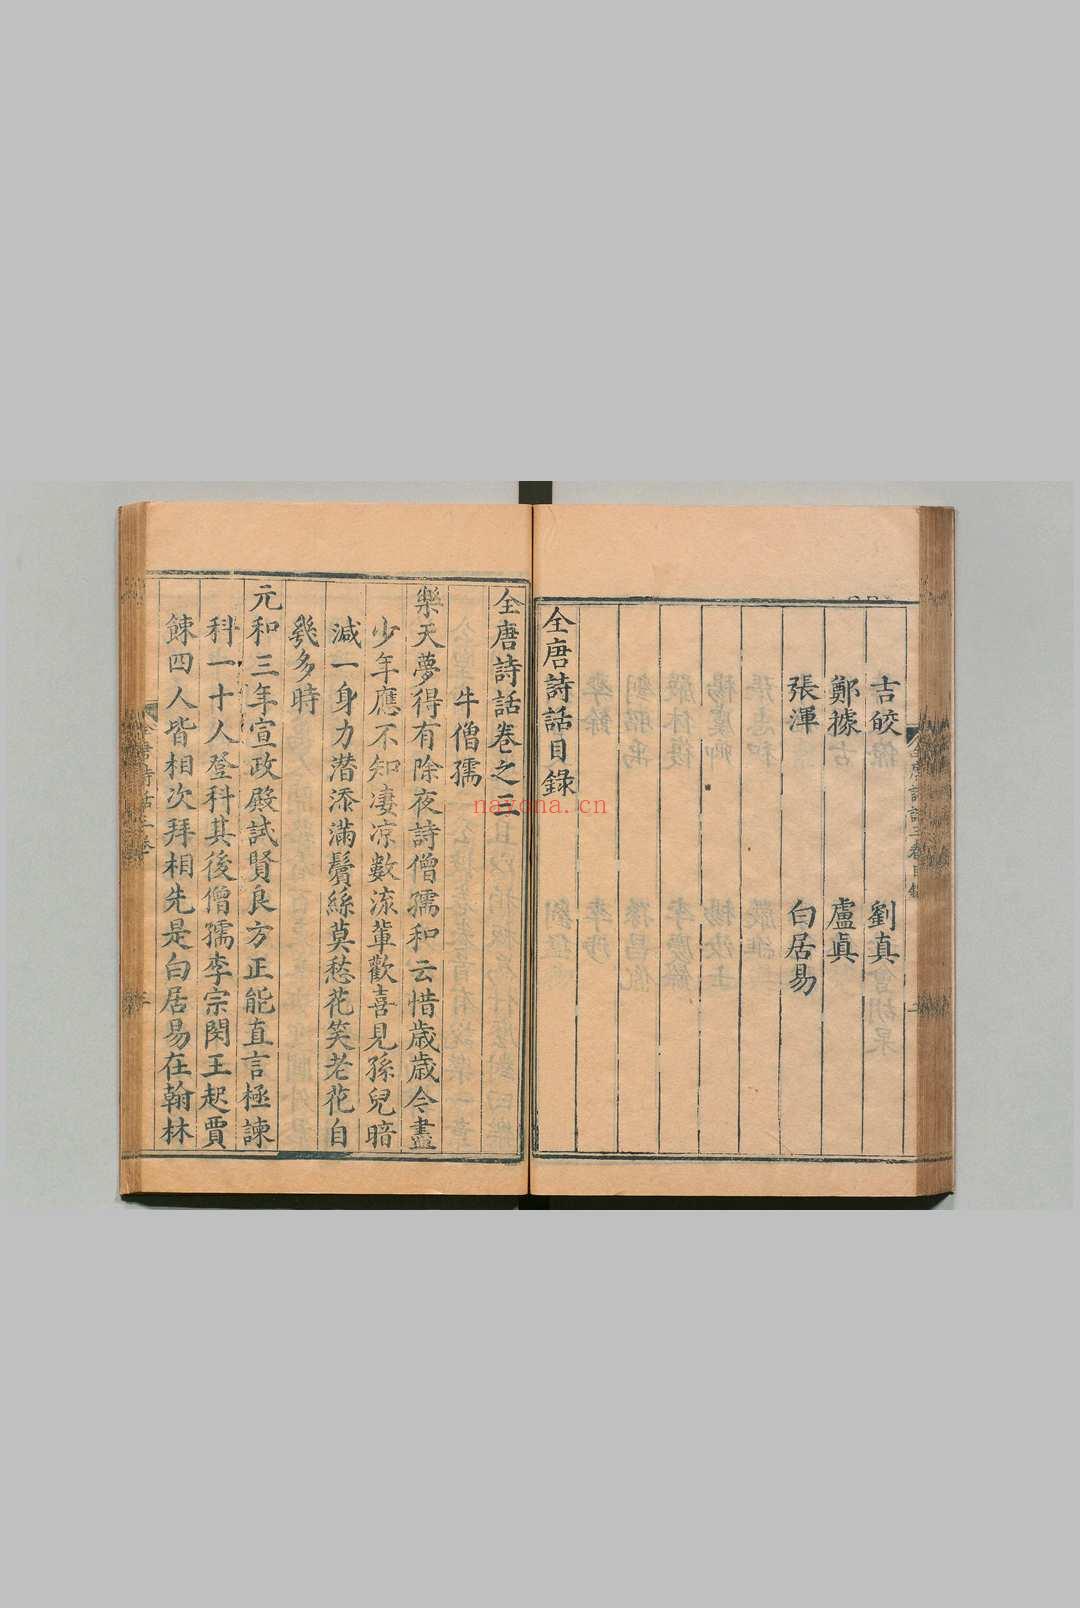 吉皎　劉真
鄭據　盧眞
張渾　白居易
全唐詩話目錄
全唐詩話卷之三
牛僧孺
樂天夢得有除夜詩僧孺和云惜歲歲今盡
少年應不知凄凉數流輩歡喜見孫兒暗
減一身力潜添滿鬢絲莫愁花笑老花自
幾多時
元和三年宣政殿試賢良方正能直言極諫
科一十人登科其後僧孺李宗閔王起賈
餗四人皆相次拜相先是白居易在翰林
nayona.cn